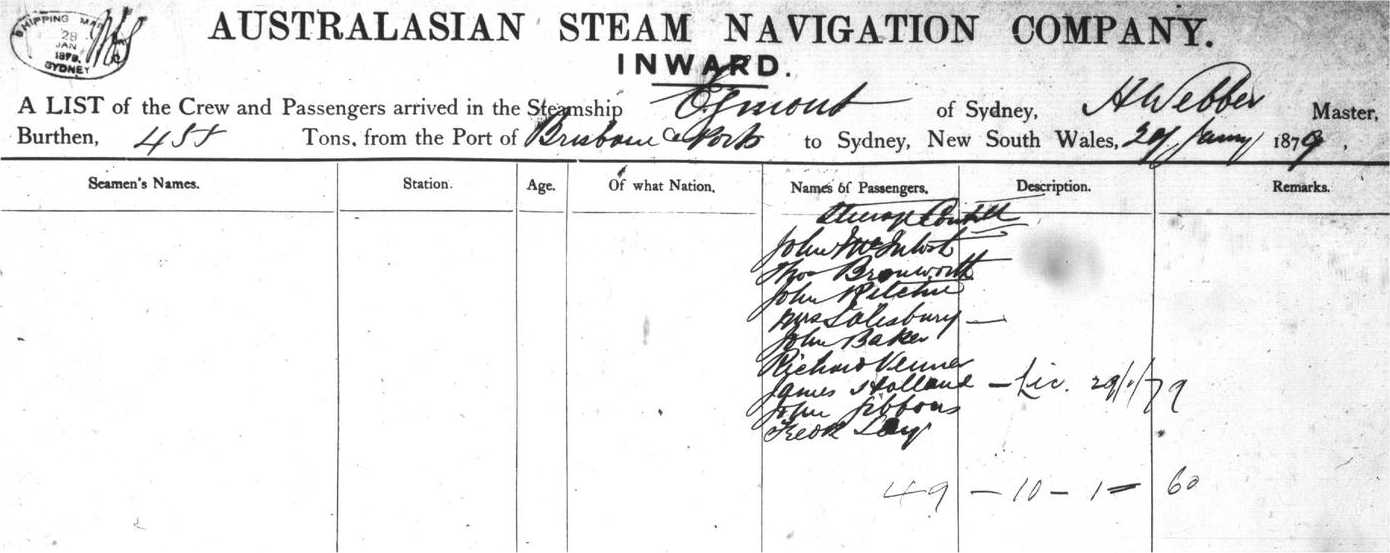 SHIPPING MA
28
JAN
1879
SYDNEY
AUSTRALASIAN STEAM NAVIGATION COMPANY.
INWARD.
A LIST of the Crew and Passengers arrived in the Steamship Egmont of Sydney, A Webber Master,
Burthen, 455 Tons, from the Port of Brisbane & Ports to Sydney, New South Wales, 29 Jany 1879,
Seamen's Names. Station. Age. Of what Nation. Names of Passengers. Description. Remarks.
Steerage Contd
John McIntosh
Thos Bronworth
John Ritchie
Mrs Salesbury —
John Baker
Richard Venner
James Holland — Lic. 29/1/79
John Gibbons
Fredk
49 — 10 — 1 = 60